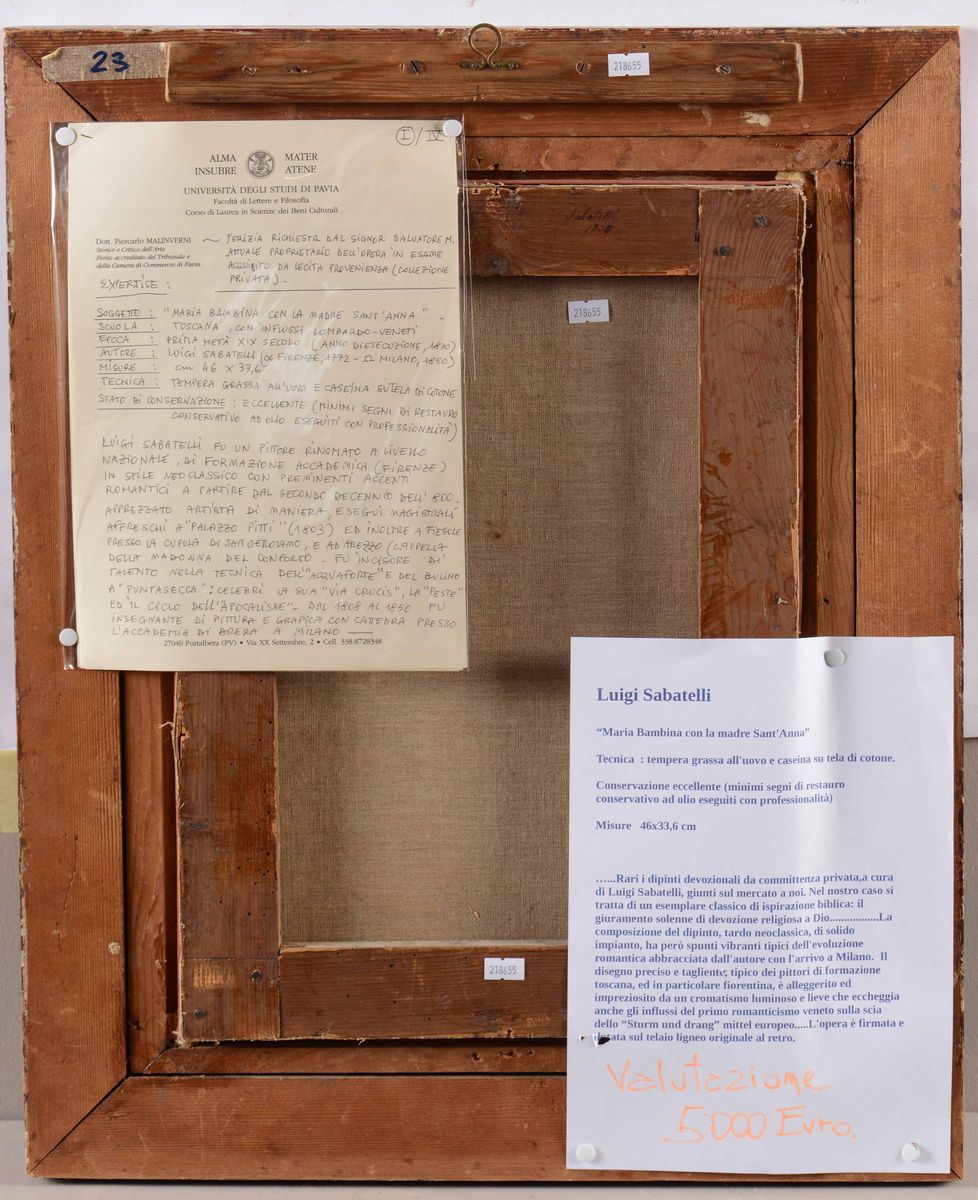 23
218655
I / IV
ALMA MATER
INSUBRE ATENE
UNIVERSITÀ DEGLI STUDI DI PAVIA
Facoltà di Lettere e Filosofia
Corso di Laurea in Scienze dei Beni Culturali
Dott. Piercarlo MALINVERNI
Storico e Critico dell'Arte
Perito accreditato del Tribunale e
della Camera di Commercio di Pavia
PERIZIA RICHIESTA DAL SIGNOR SALVATORE M.
ATTUALE PROPRIETARIO DELL'OPERA IN ESAME
ACQUISITO DA LECITA PROVENIENZA (COLLEZIONE
PRIVATA)-
EXPERTISE:
SOGGETTO: "MARIA BAMBINA CON LA MADRE SANT'ANNA" -
SCUOLA: TOSCANA, CON INFLUSSI LOMBARDO-VENETI
EPOCA: PRIMA METÀ XIX SECOLO (ANNO DI ESECUZIONE, 1830)
AUTORE: LUIGI SABATELLI (α FIRENZE, 1772 - Ω MILANO, 1850)
MISURE: cm 46 x 33,6
TECNICA: TEMPERA GRASSA ALL'UOVO E CASEINA SU TELA DI COTONE
STATO DI CONSERVAZIONE: ECCELLENTE (MINIMI SEGNI DI RESTAURO
CONSERVATIVO AD OLIO ESEGUITI CON PROFESSIONALITÀ)
LUIGI SABATELLI FU UN PITTORE RINOMATO A LIVELLO
NAZIONALE, DI FORMAZIONE ACCADEMICA (FIRENZE)
IN STILE NEOCLASSICO CON PREMINENTI ACCENTI
ROMANTICI A PARTIRE DAL SECONDO DECENNIO DELL'800.
APPREZZATO ARTISTA DI MANIERA, ESEGUÌ MAGISTRALI
AFFRESCHI A "PALAZZO PITTI" (1803) ED INOLTRE A FIESOLE
PRESSO LA CUPOLA DI SAN GEROLAMO, E AD AREZZO (CAPPELLA
DELLA MADONNA DEL CONFORTO - FU INCISORE DI
TALENTO NELLA TECNICA DELL'"ACQUAFORTE" E DEL BULINO
A "PUNTASECCA": CELEBRI LA SUA "VIA CRUCIS", LA "PESTE"
ED IL CICLO DELL'"APOCALISSE"- DAL 1808 AL 1850 FU
INSEGNANTE DI PITTURA E GRAFICA CON CATTEDRA PRESSO
L'ACCADEMIA DI BRERA A MILANO
27040 Portalbera (PV) • Via XX Settembre, 2 • Cell. 338.8728348
Sabatelli
1830
218655
Luigi Sabatelli
“Maria Bambina con la madre Sant'Anna”
Tecnica : tempera grassa all'uovo e caseina su tela di cotone.
Conservazione eccellente (minimi segni di restauro
conservativo ad olio eseguiti con professionalità)
Misure 46x33,6 cm
…...Rari i dipinti devozionali da committenza privata,a cura
di Luigi Sabatelli, giunti sul mercato a noi. Nel nostro caso si
tratta di un esemplare classico di ispirazione biblica: il
giuramento solenne di devozione religiosa a Dio.................La
composizione del dipinto, tardo neoclassica, di solido
impianto, ha però spunti vibranti tipici dell'evoluzione
romantica abbracciata dall'autore con l'arrivo a Milano. Il
disegno preciso e tagliente, tipico dei pittori di formazione
toscana, ed in particolare fiorentina, è alleggerito ed
impreziosito da un cromatismo luminoso e lieve che eccheggia
anche gli influssi del primo romanticismo veneto sulla scia
dello “Sturm und drang” mittel europeo.....L'opera è firmata e
datata sul telaio ligneo originale al retro.
Valutazione
5000 Euro.
218655